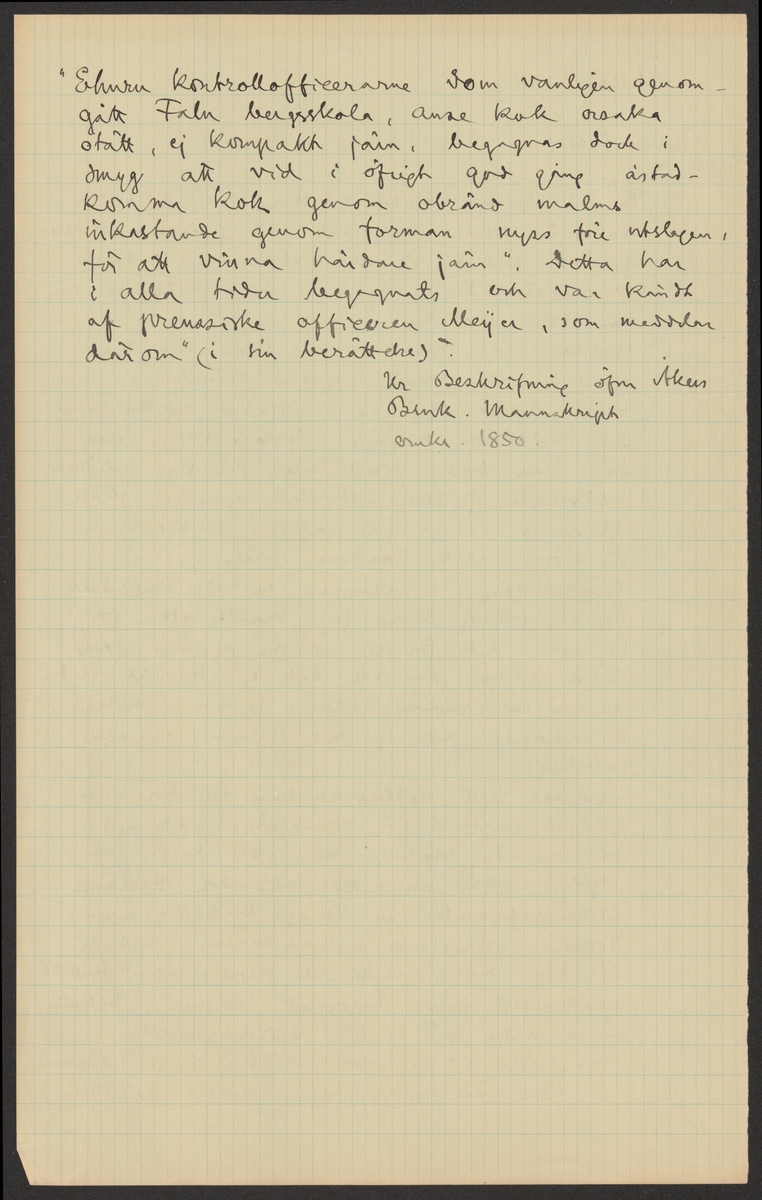 "Ehuru kontrollofficerarne som vanligen genom-
gått Falu bergsskola, anse kok orsaka
otätt, ej kompakt järn, begagnas dock i
smyg att vid i öfrigt god gång åstad-
komma kok genom obränd malms
inkastande genom forman nyss före utslagen,
för att vinna hårdare järn". Detta har
i alla tider begagnats och var kändt
af preussiske officeren Meijer, som meddelar
därom" (i sin berättelse)".
Ur Beskrifning öfver Åkers
Bruk. Manuskript
omkr. 1850.